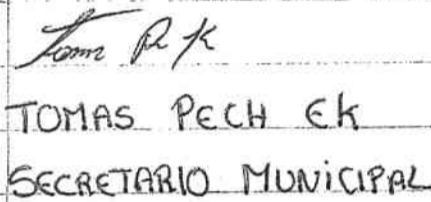 Tom P. K
TOMAS PECH EK
SECRETARIO MUNICIPAL